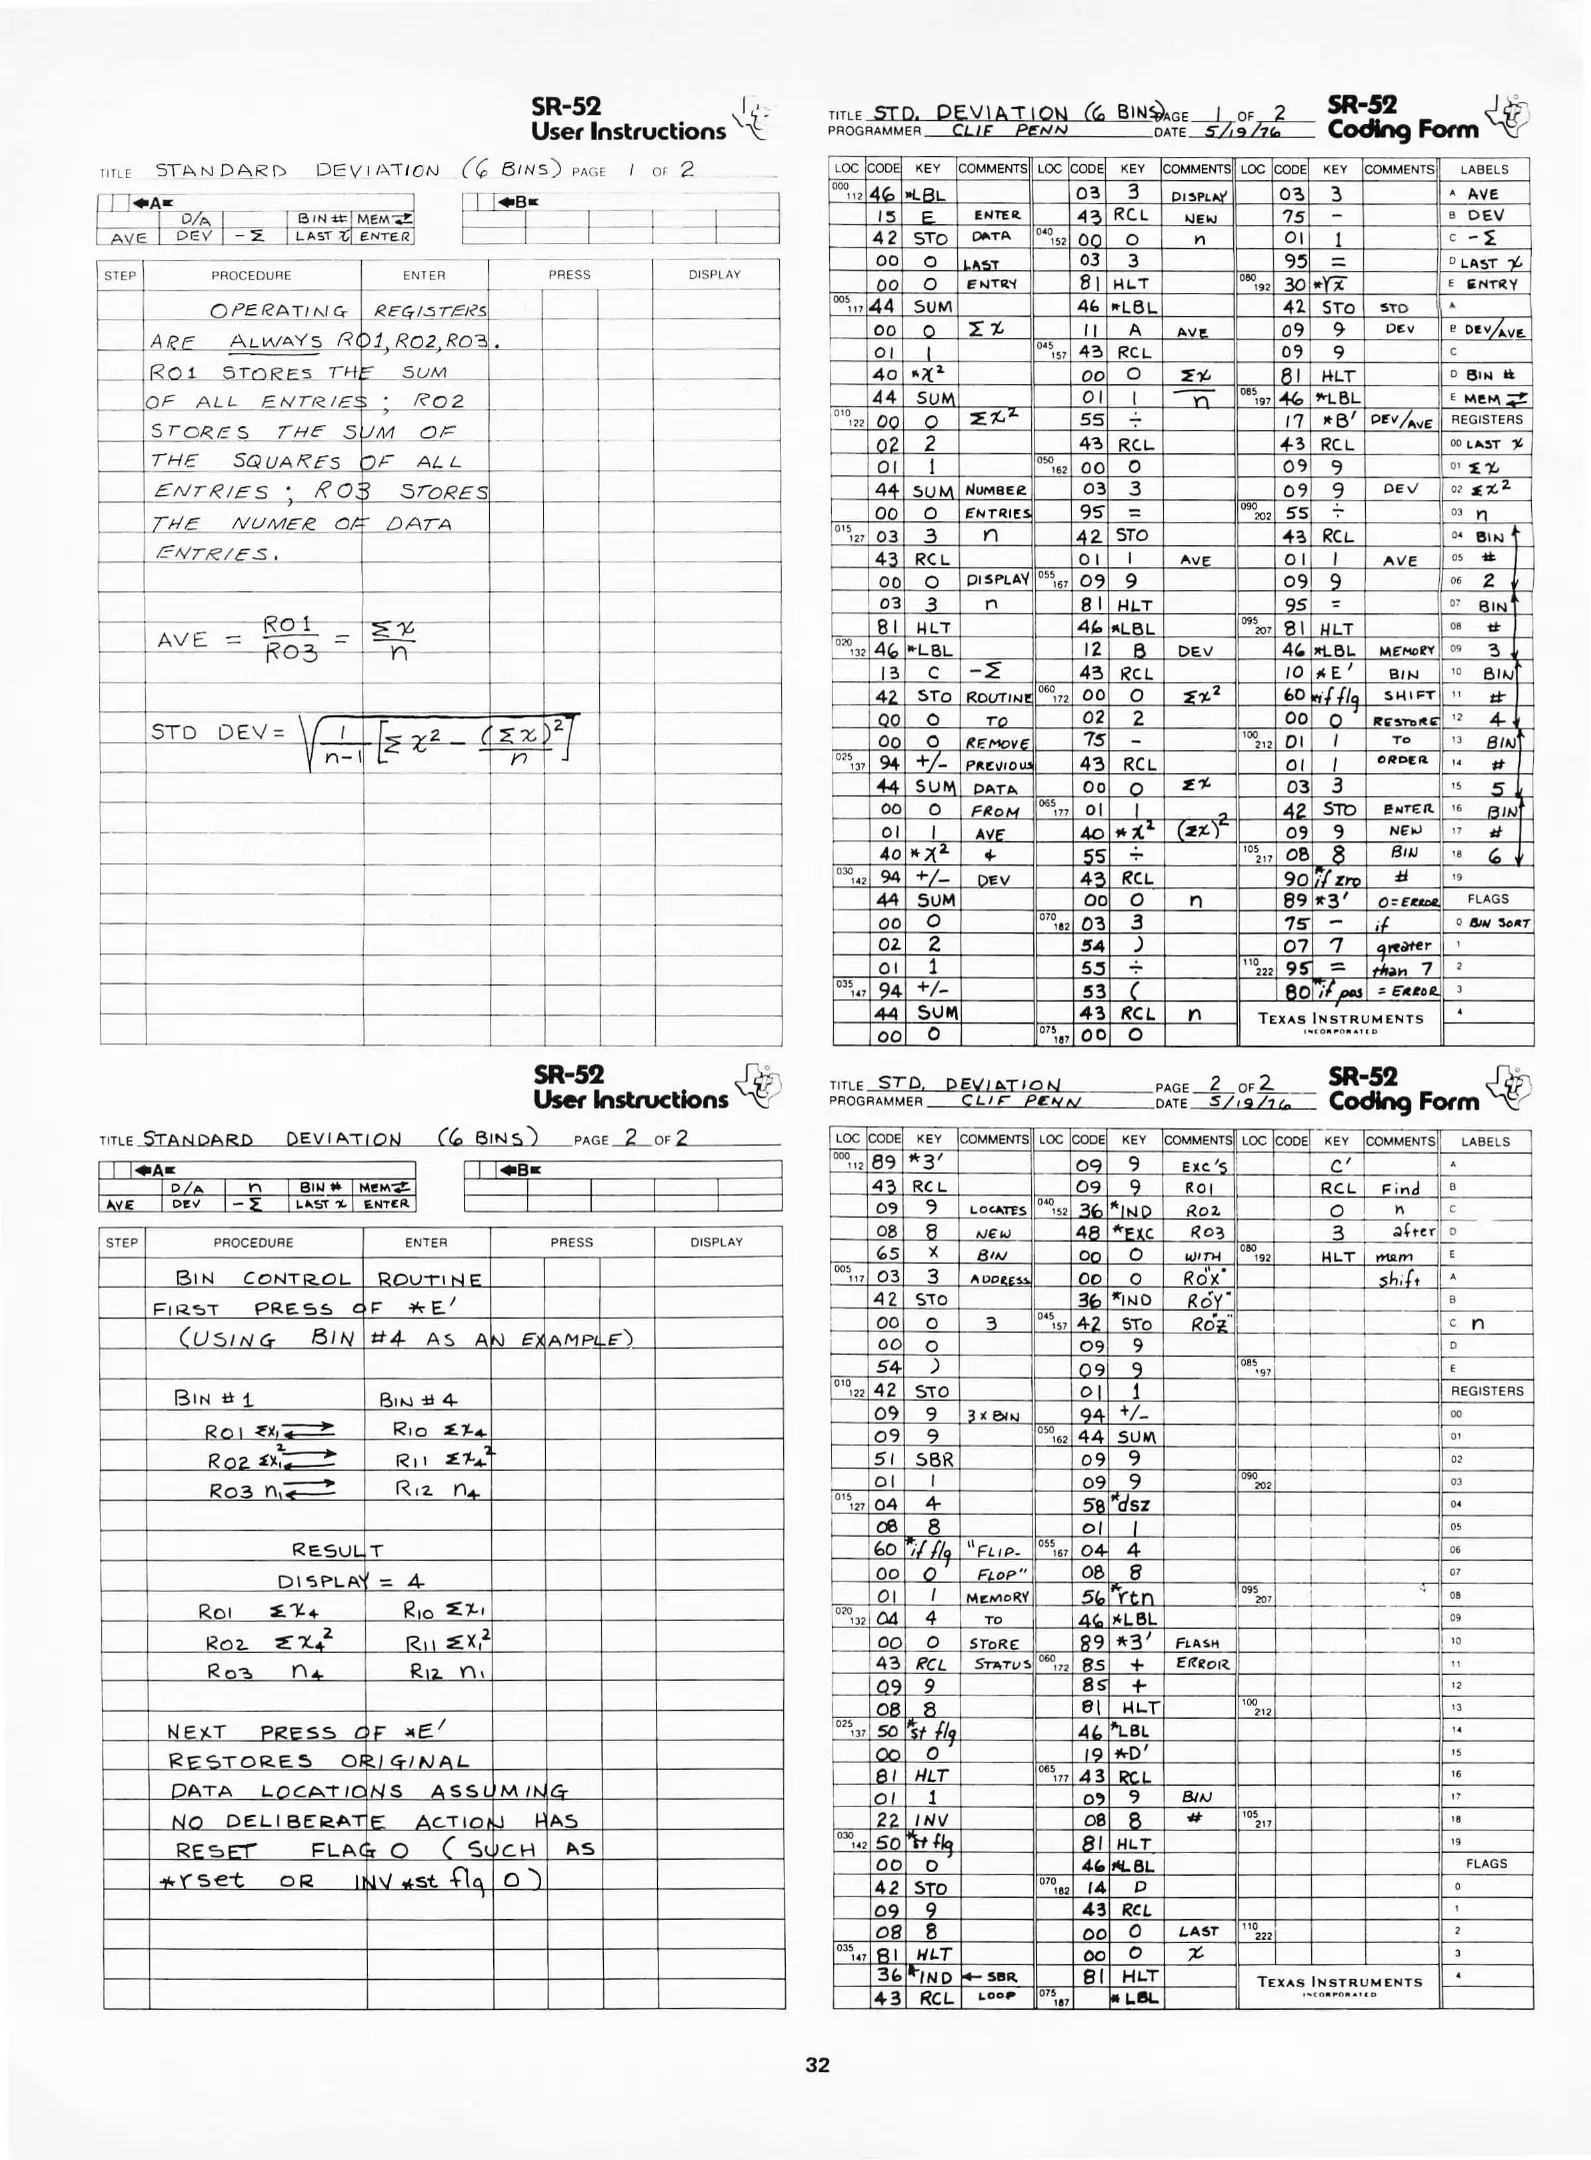 SR-52
User Instructions
TITLE STANDARD DEVIATION (6 BINS) PAGE 1 OF 2
A B
D/A BIN # MEM⇄
AVE DEV -Σ LAST X ENTER
STEP PROCEDURE ENTER PRESS DISPLAY
OPERATING REGISTERS
ARE ALWAYS R01, R02, R03.
R01 STORES THE SUM
OF ALL ENTRIES ; R02
STORES THE SUM OF
THE SQUARES OF ALL
ENTRIES ; R03 STORES
THE NUMER OF DATA
ENTRIES.
AVE = R01/R03 = Σx/n
STD DEV = √(1/(n-1) [Σx² - (Σx)²/n])
SR-52
User Instructions
TITLE STANDARD DEVIATION (6 BINS) PAGE 2 OF 2
A B
D/A n BIN # MEM⇄
AVE DEV -Σ LAST X ENTER
STEP PROCEDURE ENTER PRESS DISPLAY
BIN CONTROL ROUTINE
FIRST PRESS OF *E'
(USING BIN #4 AS AN EXAMPLE)
BIN #1 BIN #4
R01 Σx₁ ⇄ R10 Σx₄
R02 Σx₁² ⇄ R11 Σx₄²
R03 n₁ ⇄ R12 n₄
RESULT
DISPLAY = 4
R01 Σx₄ R10 Σx₁
R02 Σx₄² R11 Σx₁²
R03 n₄ R12 n₁
NEXT PRESS OF *E'
RESTORES ORIGINAL
DATA LOCATIONS ASSUMING
NO DELIBERATE ACTION HAS
RESET FLAG 0 (SUCH AS
*rset OR INV *st flg 0)
TITLE STD. DEVIATION (6 BINS) PAGE 1 OF 2
PROGRAMMER CLIF PENN DATE 5/19/76
SR-52
Coding Form
LOC CODE KEY COMMENTS LOC CODE KEY COMMENTS LOC CODE KEY COMMENTS LABELS
000 112 46 *LBL 03 3 DISPLAY 03 3 A AVE
15 E ENTER 43 RCL NEW 75 - B DEV
42 STO DATA 040 152 00 0 n 01 1 C -Σ
00 0 LAST 03 3 95 = D LAST X
00 0 ENTRY 81 HLT 080 192 30 *√x E ENTRY
005 117 44 SUM 46 *LBL 42 STO STD A
00 0 Σx 11 A AVE 09 9 DEV B DEV/AVE
01 1 045 157 43 RCL 09 9 C
40 *x² 00 0 Σx 81 HLT D BIN #
44 SUM 01 1 n 085 197 46 *LBL E MEM⇄
010 122 00 0 Σx² 55 ÷ 17 *B' DEV/AVE REGISTERS
02 2 43 RCL 43 RCL 00 LAST X
01 1 050 162 00 0 09 9 01 Σx
44 SUM NUMBER 03 3 09 9 DEV 02 Σx²
00 0 ENTRIES 95 = 090 202 55 ÷ 03 n
015 127 03 3 n 42 STO 43 RCL 04 BIN
43 RCL 01 1 AVE 01 1 AVE 05 #
00 0 DISPLAY 055 167 09 9 09 9 06 2
03 3 n 81 HLT 95 = 07 BIN
81 HLT 46 *LBL 095 207 81 HLT 08 #
020 132 46 *LBL 12 B DEV 46 *LBL MEMORY 09 3
13 C -Σ 43 RCL 10 *E' BIN 10 BIN
42 STO ROUTINE 060 172 00 0 Σx² 60 *if flg SHIFT 11 #
00 0 TO 02 2 00 0 RESTORE 12 4
00 0 REMOVE 75 - 100 212 01 1 TO 13 BIN
025 137 94 +/- PREVIOUS 43 RCL 01 1 ORDER 14 #
44 SUM DATA 00 0 Σx 03 3 15 5
00 0 FROM 065 177 01 1 42 STO ENTER 16 BIN
01 1 AVE 40 *x² (Σx)² 09 9 NEW 17 #
40 *x² & 55 ÷ 105 217 08 8 BIN 18 6
030 142 94 +/- DEV 43 RCL 90 *if zro # 19
44 SUM 00 0 n 89 *3' 0=ERROR FLAGS
00 0 070 182 03 3 75 - if 0 BIN SORT
02 2 54 ) 07 7 greater 1
01 1 55 ÷ 110 222 95 = than 7 2
035 147 94 +/- 53 ( 80 *if pos = ERROR 3
44 SUM 43 RCL n TEXAS INSTRUMENTS 4
00 0 075 187 00 0 INCORPORATED
TITLE STD. DEVIATION PAGE 2 OF 2
PROGRAMMER CLIF PENN DATE 5/19/76
SR-52
Coding Form
LOC CODE KEY COMMENTS LOC CODE KEY COMMENTS LOC CODE KEY COMMENTS LABELS
000 112 89 *3' 09 9 EXC'S C' A
43 RCL 09 9 R01 RCL Find B
09 9 LOCATES 040 152 36 *IND R02 0 n C
08 8 NEW 48 *EXC R03 3 after D
65 X BIN 00 0 WITH 080 192 HLT mem E
005 117 03 3 ADDRESS 00 0 R0"X" shift A
42 STO 36 *IND R0"Y" B
00 0 3 045 157 42 STO R0"Z" C n
00 0 09 9 D
54 ) 09 9 085 197 E
010 122 42 STO 01 1 REGISTERS
09 9 3 X BIN 94 +/- 00
09 9 050 162 44 SUM 01
51 SBR 09 9 02
01 1 09 9 090 202 03
015 127 04 4 58 *dsz 04
08 8 01 1 05
60 *if flg "FLIP- 055 167 04 4 06
00 0 FLOP" 08 8 07
01 1 MEMORY 56 *rtn 095 207 08
020 132 04 4 TO 46 *LBL 09
00 0 STORE 89 *3' FLASH 10
43 RCL STATUS 060 172 85 + ERROR 11
09 9 85 + 12
08 8 81 HLT 100 212 13
025 137 50 *st flg 46 *LBL 14
00 0 19 *D' 15
81 HLT 065 177 43 RCL 16
01 1 09 9 BIN 17
22 INV 08 8 # 105 217 18
030 142 50 *st flg 81 HLT 19
00 0 46 *LBL FLAGS
42 STO 070 182 14 D 0
09 9 43 RCL 1
08 8 00 0 LAST 110 222 2
035 147 81 HLT 00 0 X 3
36 *IND ← SBR 81 HLT TEXAS INSTRUMENTS 4
43 RCL LOOP 075 187 *LBL INCORPORATED
32